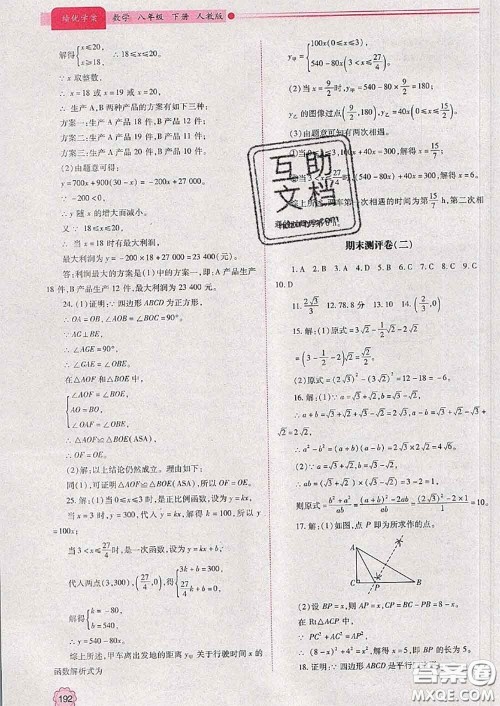 培优学案 数学 八年级 下册 人教版
解得{x≤20,
x≥18.
∴18≤x≤20.
∵x取整数,
∴x=18或x=19或x=20.
∴生产A,B两种产品的方案有如下三种:
方案一:生产A产品18件,B产品12件;
方案二:生产A产品19件,B产品11件;
方案三:生产A产品20件,B产品10件.
(2)由题意可得:
y=700x+900(30-x)=-200x+27 000.
∵-200<0,
∴y随x的增大而减小.
∴当x=18时,y有最大值,
最大利润为y=-200×18+27 000=23 400元.
答:利润最大的方案是(1)中的方案一,即:A产品生产
18件,B产品生产12件,最大利润为23 400元.
24.(1)证明:∵四边形ABCD为正方形,
∴OA=OB,∠AOB=∠BOC=90°.
∵AG⊥BE,
∴∠AGE=90°.
∴∠OAF=∠OBE.
在△AOF和△BOE中,
{∠AOF=∠BOE,
AO=BO,
∠OAF=∠OBE.
∴△AOF≌△BOE(ASA).
∴OE=OF.
(2)解:以上结论仍然成立.理由如下:
同(1),可证明△AOF≌△BOE(ASA),所以OF=OE.
25.解:(1)当0≤x≤3时,是正比例函数,设为y=kx,
当x=3时,y=300,代入,解得k=100,所以y=
100x;
当3<x≤27/4时,是一次函数,设为y=kx+b,
代入两点(3,300),(27/4,0),得{3k+b=300,
27/4k+b=0.
解得{k=-80,
b=540.
∴y=540-80x.
综上所述,甲车离出发地的距离y甲关于行驶时间x的
函数解析式为
192
y甲={100x(0≤x≤3),
540-80x(3<x≤27/4).
(2)当x=9/2时,y甲=540-80×9/2=180;
y乙的图像过点(9/2,180),∴y乙=40x(0≤x≤15/2).
(3)由题意可知有两次相遇.
解得x=15/7;
互助
文档
期末测评卷(二)
1.A 2.D 3.D 4.B 5.C 6.C 7.B 8.D 9.C
10.D
11.2√3/3 12.78.8分 13.10 14.(2/3,0)
15.解:(1)原式=3√2-1/2√2-2√2
=(3-1/2-2)√2=√2/2.
(2)原式=(2√3)²-(3√2)²=12-18=-6.
16.解:(1)∵a=√3+√2,b=√3-√2,
∴a+b=√3+√2+√3-√2=2√3,
ab=(√3+√2)×(√3-√2)=1.
则原式=(b²+a²)/ab=((a+b)²-2ab)/ab=((2√3)²-2×1)/1
=10.
17.解:(1)如图,点P即为所求作的点.
A
C P B
(2)设BP=x,则AP=x,CP=
在Rt△ACP中,
∵PC²+AC²=PA²,
18.证明:∵四边形ABCD是平行
答案圈
MXQE.COM